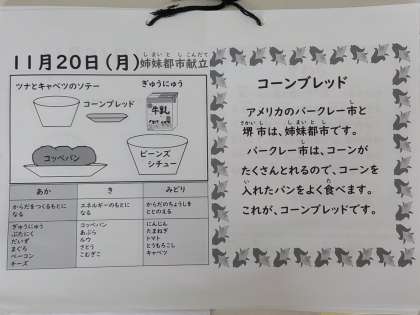 11月20日(月)姉妹都市献立
しまいとしこんだて
ツナとキャベツのソテー
ぎゅうにゅう
コーンブレッド
牛乳
コッペパン
ビーンズ
シチュー
あか
き
みどり
からだをつくるもとに
なる
エネルギーのもとに
なる
からだのちょうしを
ととのえる
ぎゅうにゅう
ぶたにく
だいず
まぐろ
ベーコン
チーズ
コッペパン
あぶら
ルウ
さとう
こむぎこ
にんじん
たまねぎ
トマト
とうもろこし
キャベツ
コーンブレッド
アメリカのバークレー市と
堺市は、姉妹都市です。
バークレー市は、コーンが
たくさんとれるので、コーンを
入れたパンをよく食べます。
これが、コーンブレッドです。